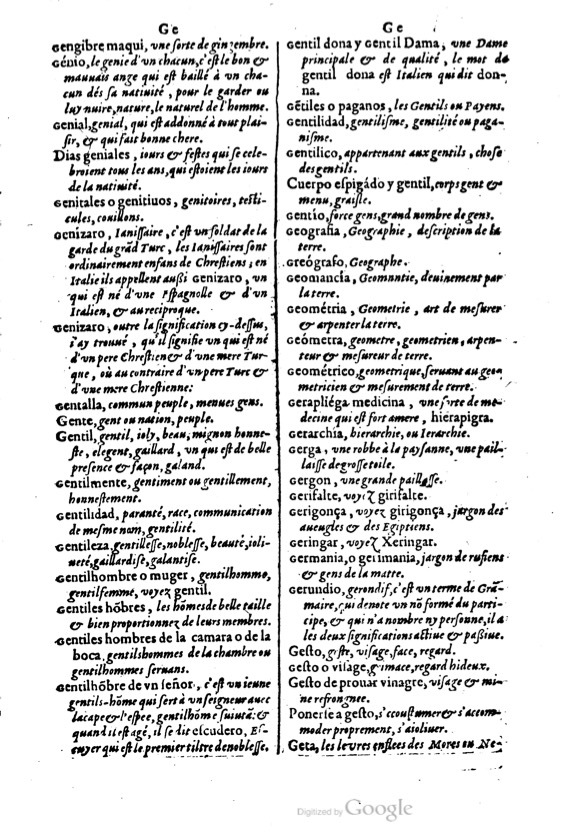 Ge
Gengibre maqui, vne sorte de gingembre.
Génio, le genie d'vn chacun, c'est le bon &
mauuais ange qui est baillé à vn cha-
cun dés sa natiuité, pour le garder ou
luy nuire, nature, le naturel de l'homme.
Genial, genial, qui est addonné à tout plai-
sir, & qui fait bonne chere.
Dias geniales, iours & festes qui se cele-
broient tous les ans, qui estoient les iours
de la natiuité.
Genitales o genitiuos, genitoires, testi-
cules, couillons.
Genizaro, Ianissaire, c'est vn soldat de la
garde du grãd Turc, les Ianissaires sont
ordinairement enfans de Chrestiens; en
Italie ils appellent aussi Genizaro, vn
qui est né d'vne Espagnolle & d'vn
Italien, & au reciproque.
Genizaro, outre la signification cy-dessus,
i'ay trouué, qu'il signifie vn qui est né
d'vn pere Chrestien & d'vne mere Tur-
que, où au contraire d'vn pere Turc &
d'vne mere Chrestienne:
Gentalla, commun peuple, menues gens.
Gente, gent ou nation, peuple.
Gentil, gentil, ioly, beau, mignon honne-
ste, elegent, gaillard, vn qui est de belle
presence & façon, galand.
Gentilmente, gentiment ou gentillement,
honnestement.
Gentilidad, paranté, race, communication
de mesme nom, gentilité.
Gentileza, gentillesse, noblesse, beauté, ioli-
ueté, gaillardise, galantise.
Gentilhombre o muger, gentilhomme,
gentilfemme, voyez gentil.
Gentiles hõbres, les hõmes de belle taille
& bien proportionnez de leurs membres.
Gentiles hombres de la camara o de la
boca, gentilshommes de la chambre ou
gentilhommes seruans.
Gentilhõbre de vn señor, c'est vn ieune
gentils-hõme qui sert à vn seigneur auec
la cape & l'espee, gentilhõme suiuãt: &
quand il est agé, il se dit escudero, Es-
cuyer qui est le premier tiltre de noblesse.
Ge
Gentil dona y gentil Dama, vne Dame
principale & de qualité, le mot de
gentil dona est Italien qui dit don-
na.
Gẽtiles o paganos, les Gentils ou Payens.
Gentilidad, gentilisme, gentilité ou paga-
nisme.
Gentilico, appartenant aux gentils, chose
des gentils.
Cuerpo espigádo y gentil, corps gent &
menu, graisle.
Gentio, force gens, grand nombre de gens.
Geografia, Geographie, description de la
terre.
Greógrafo, Geographe.
Geomancía, Geomantie, deuinement par
la terre.
Geométria, Geometrie, art de mesurer
& arpenter la terre.
Geómetra, geometre, geometrien, arpen-
teur & mesureur de terre.
Geométrico, geometrique, seruant au geo-
metricien & mesurement de terre.
Gerapliéga medicina, vne sorte de me-
decine qui est fort amere, hierapigra.
Gerarchía, hierarchie, ou Ierarchie.
Gerga, vne robbe à la paysanne, vne pail-
laisse de grosse toile.
Gergon, vne grande paillasse.
Gerifalte, voyez girifalte.
Gerigonça, voyez girigonça, jargon des
aueugles & des Egiptiens.
Geringar, voyez Xeringar.
Germania, o gerimania, jargon de rufiens
& gens de la matte.
Gerundio, gerondif, c'est vn terme de Grã-
maire, qui denote vn nõ formé du parti-
cipe, & qui n'a nombre ny personne, il a
les deux significations actiue & passiue.
Gesto, geste, visage, face, regard.
Gesto o visage, grimace, regard hideux.
Gesto de prouar vinagre, visage & mi-
ne refrongnee.
Ponerse a gesto, s'accoustumer & s'accom-
moder proprement, s'aioliuer.
Geta, les levres enflees des Mores ou Ne-
Digitized by Google